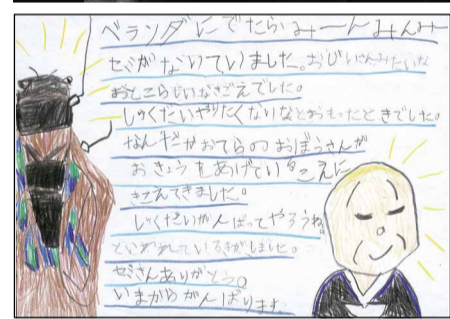 ベランダにでたらみーんみんみー
セミがないていました。おじいさんみたいな
おとこらしいなきごえでした。
しゅくだいやりたくないなとおもったときでした。
なんだかおてらのおぼうさんが
おきょうをあげているこえに
きこえてきました。
しゅくだいがんばってやろうね
といわれているきがしました。
セミさんありがとう。
いまからがんばります。